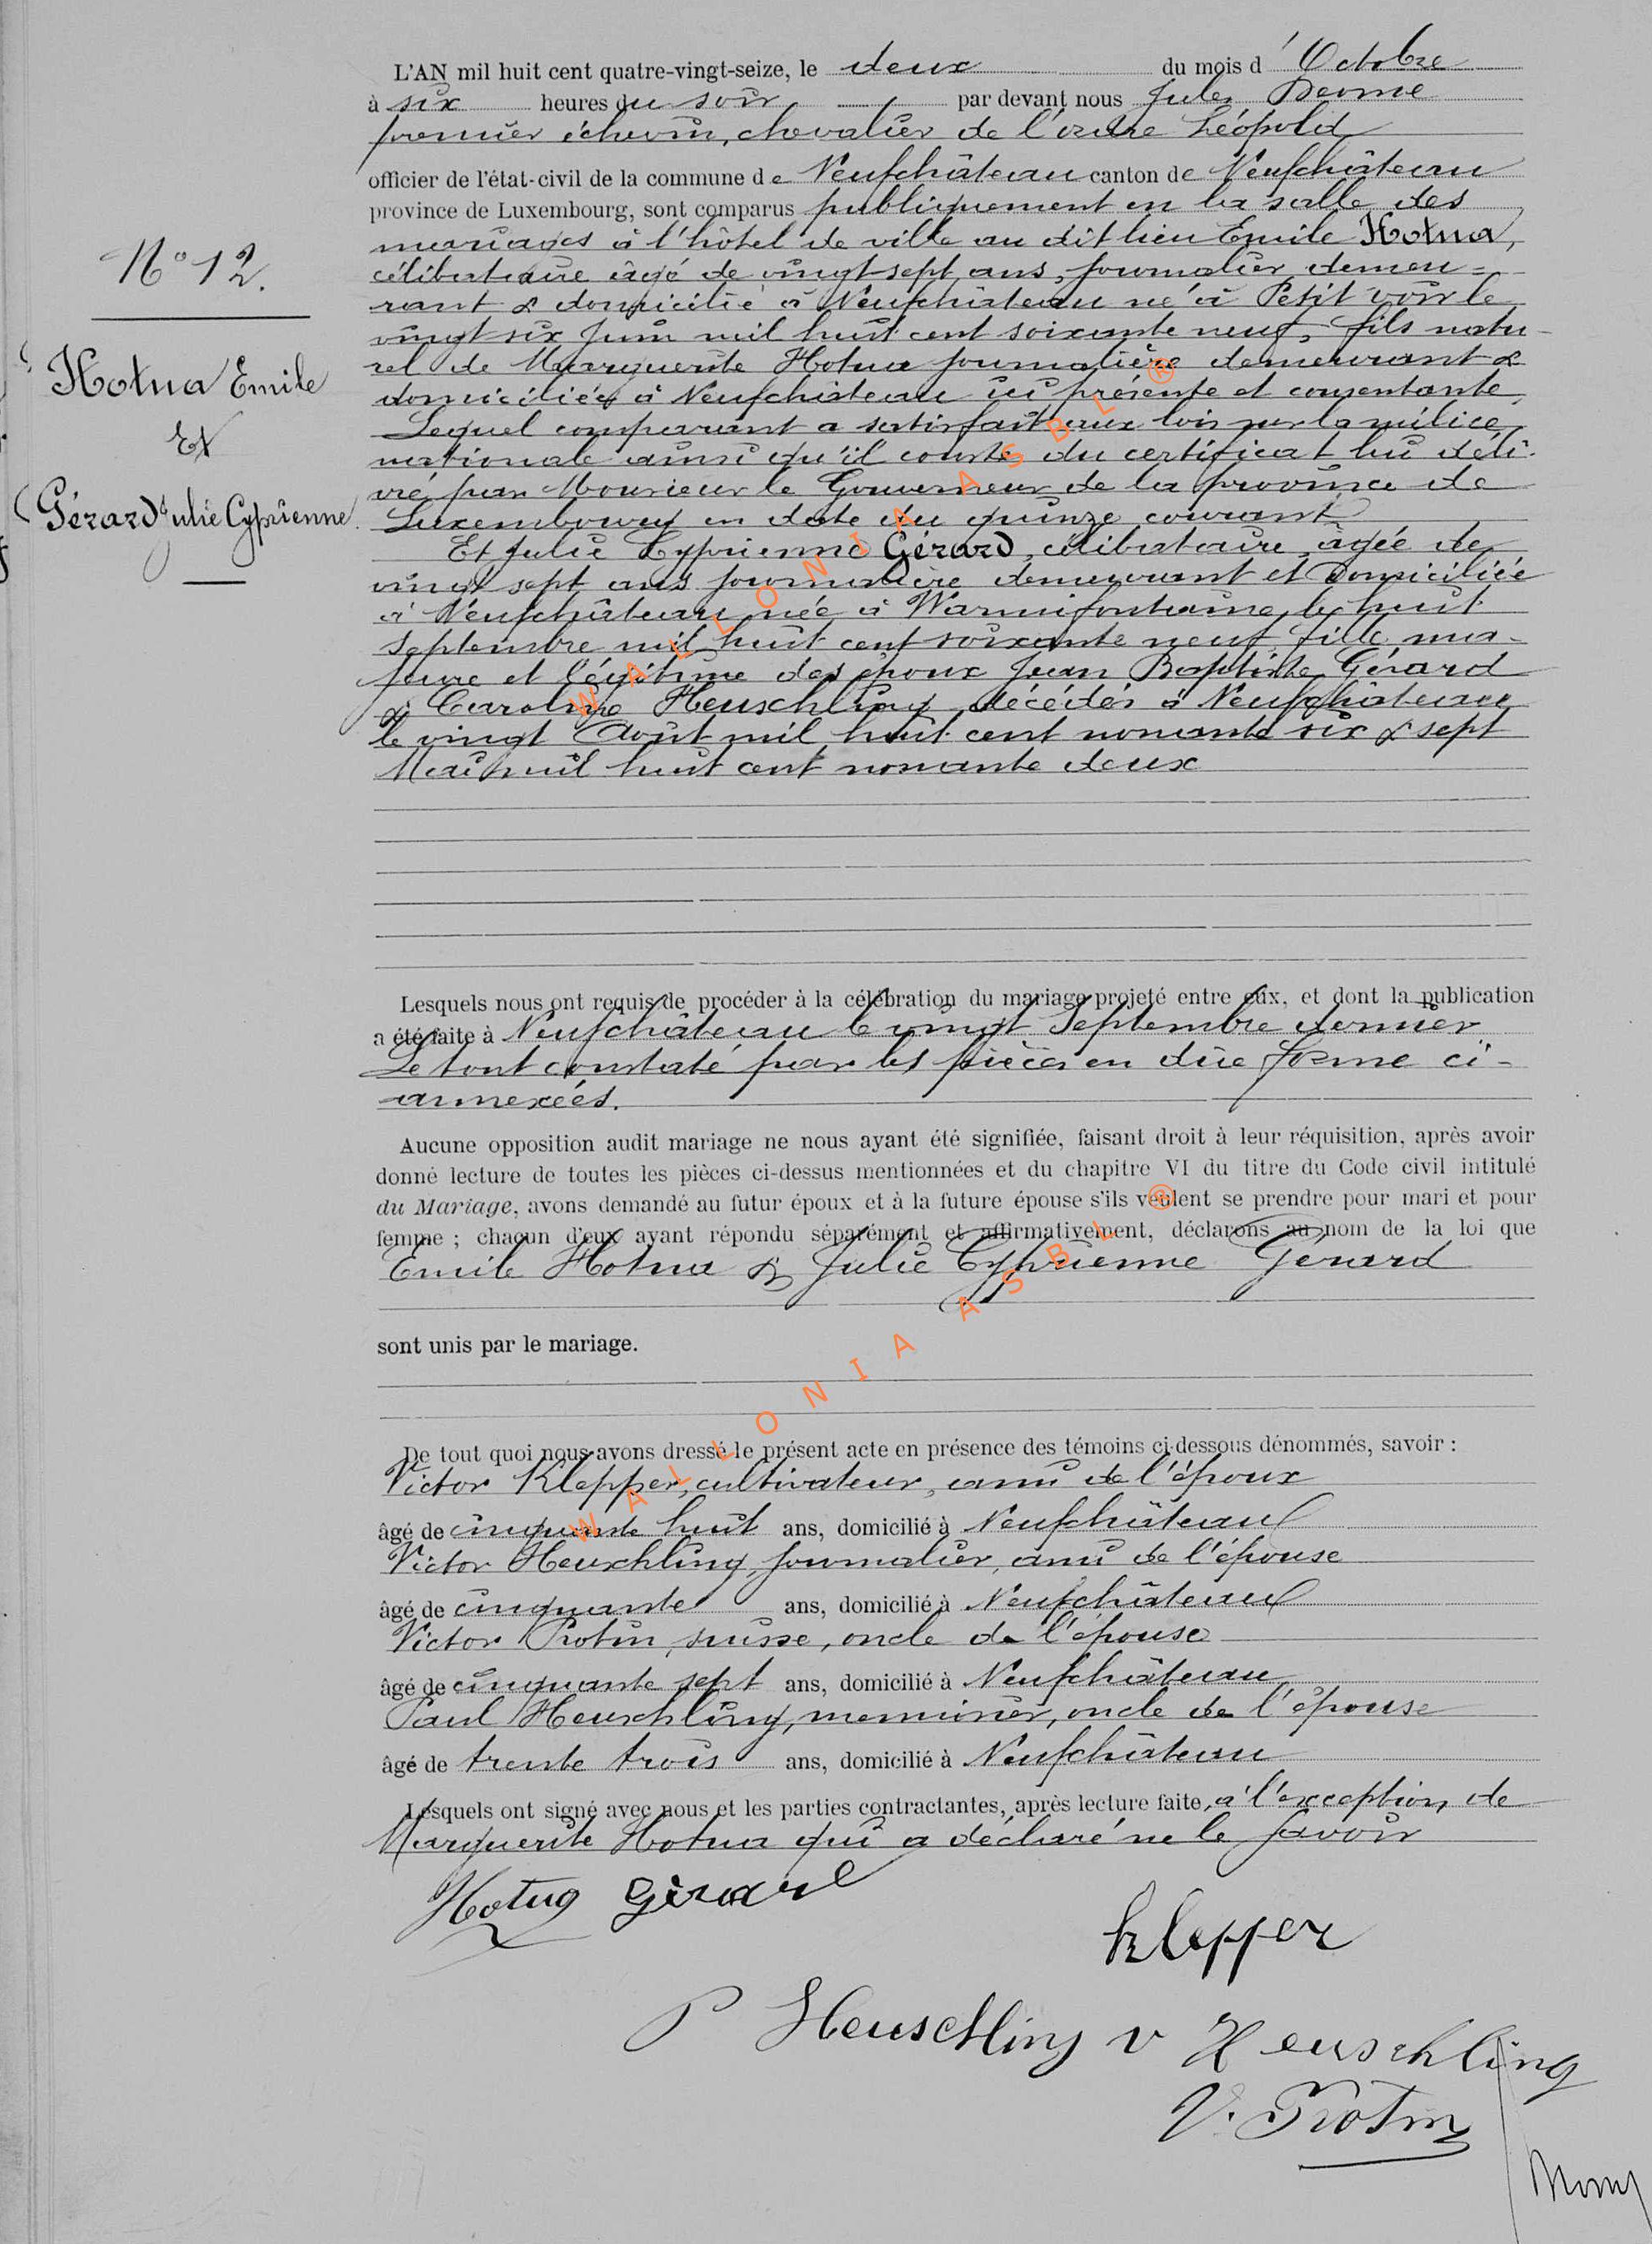 L'AN mil huit cent quatre-vingt-seize, le deux du mois d'Octobre
à six heures du soir par devant nous Jules
premier échevin, chevalier de l'ordre Léopold
officier de l'état-civil de la commune de Neufchâteau canton de Neufchâteau
province de Luxembourg, sont comparus publiquement en la salle des
mariages à l'hôtel de ville au dit lieu Emile Hotua,
célibataire âgé de vingt-sept ans, journalier demeu=
rant & domicilié à Neufchâteau né à Petit voir le
vingt six Juin mil huit cent soixante neuf, fils natu-
rel de Marguerite Hotua journalière demeurant &
domiciliée à Neufchâteau ici présente et consentante,
Lequel comparant a satisfait aux lois sur la milice
nationale ainsi qu'il conste du certificat lui déli-
vré par Monsieur le Gouverneur de la province de
Luxembourg en date du quinze courant
Et Julie Cyprienne Gérard, célibataire, âgée de
vingt sept ans journalière demeurant et domiciliée
à Neufchâteau née à Warmifontaine le huit
Septembre mil huit cent soixante neuf, fille ma-
jeure et légitime des époux Jean Baptiste Gérard
& Caroline Heuschling, décédés à Neufchâteau
le vingt Août mil huit cent nonante six & sept
Mai mil huit cent nonante deux
N° 12.
Hotua Emile
Et
Gérard Julie Cyprienne.
Lesquels nous ont requis de procéder à la célébration du mariage projeté entre eux, et dont la publication
a été faite à Neufchâteau le vingt Septembre dernier
Le tout constaté par les pièces en due forme ci-
annexées.
Aucune opposition audit mariage ne nous ayant été signifiée, faisant droit à leur réquisition, après avoir
donné lecture de toutes les pièces ci-dessus mentionnées et du chapitre VI du titre du Code civil intitulé
du Mariage, avons demandé au futur époux et à la future épouse s'ils veulent se prendre pour mari et pour
femme ; chacun d'eux ayant répondu séparément et affirmativement, déclarons au nom de la loi que
Emile Hotua & Julie Cyprienne Gerard
sont unis par le mariage.
De tout quoi nous avons dressé le présent acte en présence des témoins ci-dessous dénommés, savoir :
Victor Klepper, cultivateur, ami de l'époux
âgé de cinquante huit ans, domicilié à Neufchâteau
Victor Heuschling, journalier, ami de l'épouse
âgé de cinquante ans, domicilié à Neufchâteau
Victor Protin, suisse, oncle de l'épouse
âgé de cinquante sept ans, domicilié à Neufchâteau
Paul Heuschling, menuisier, oncle de l'épouse
âgé de trente trois ans, domicilié à Neufchâteau
Lesquels ont signé avec nous et les parties contractantes, après lecture faite, à l'exception de
Marguerite Hotua qui a déclaré ne le savoir
Hotua Gérard
Klepper
P Heuschling v Heuschling
V. Protin
WALLONIA ASBL ®
WALLONIA ASBL ®